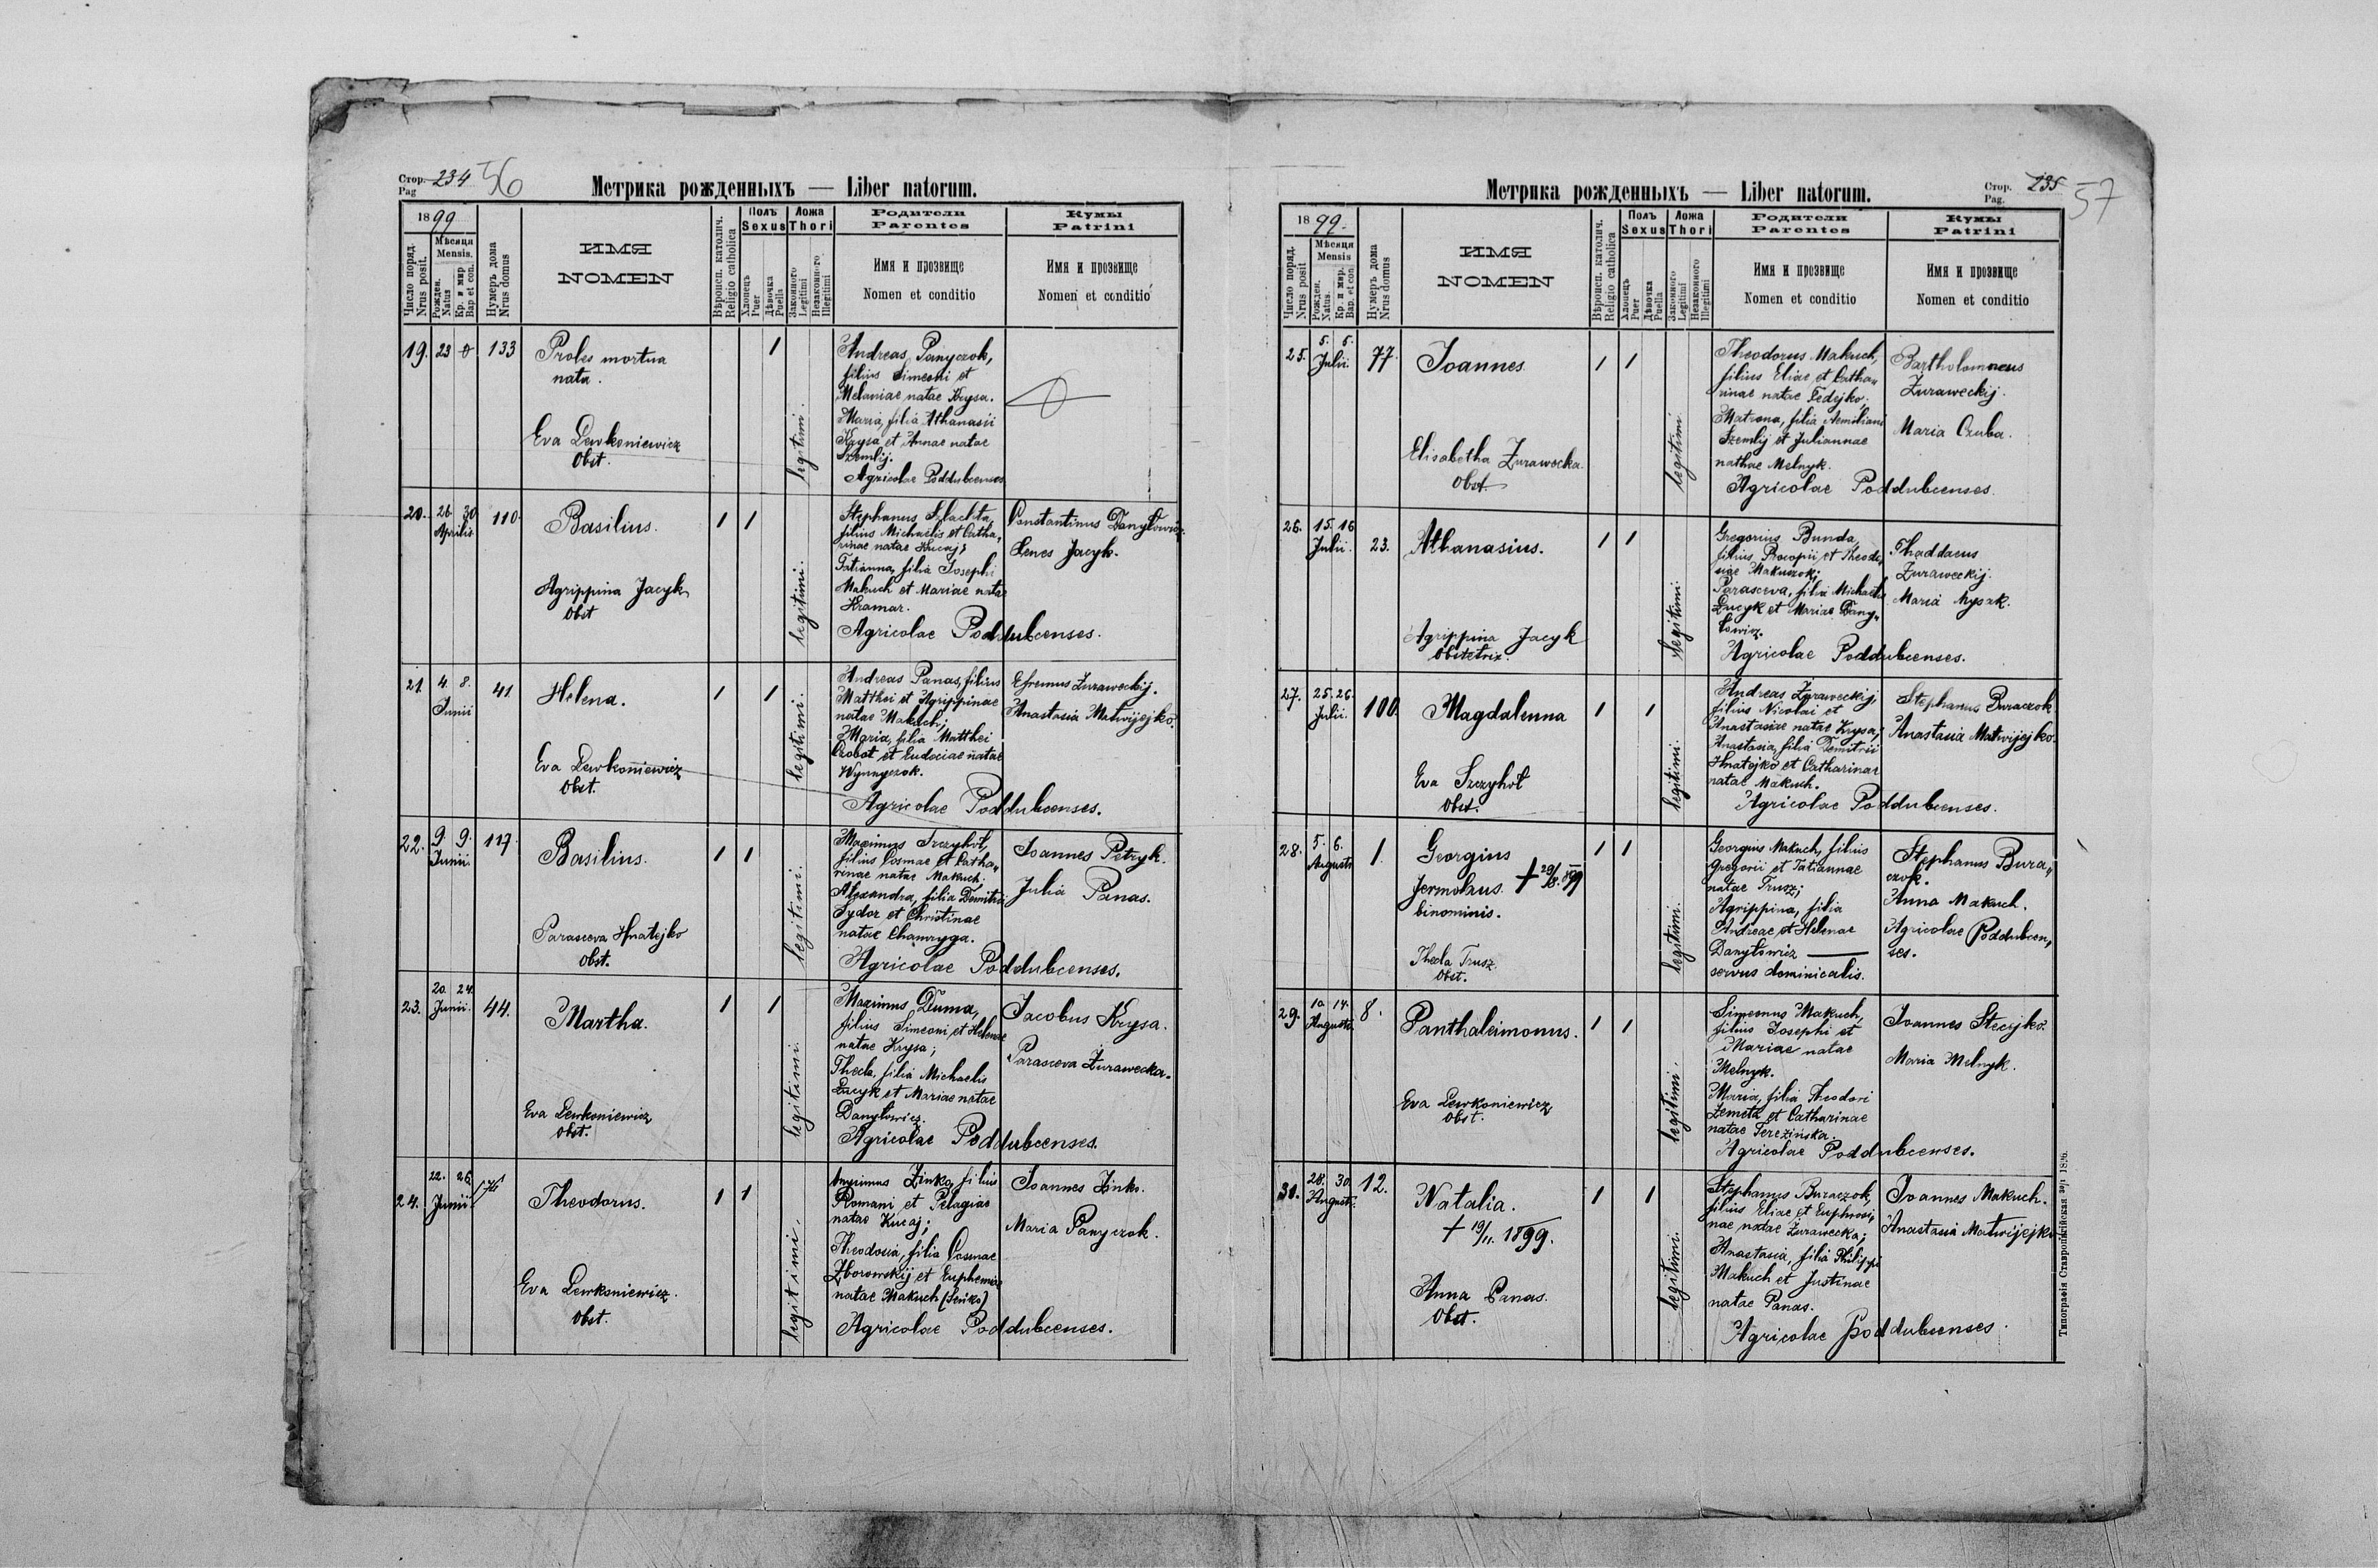 Стор. 234 56
Pag
Метрика рожденныхъ — Liber natorum.
1899
Число поряд.
Nrus posit.
Мѣсяця
Mensis.
Рожден.
Natus
Кр. и мир
Bap et con.
Нумеръ дома
Nrus domus
ИМЯ
NOMEN
Вѣроисп. католич.
Religio catholica
Полъ
Sexus
Хлопецъ
Puer
Дѣвочка
Puella
Ложа
Thori
Законного
Legitimi
Незаконного
Illegitimi
Родители
Parentes
Имя и прозвище
Nomen et conditio
Кумы
Patrini
Имя и прозвище
Nomen et conditio
19. 23 0 133
Proles mortua
nata.
Eva Lewkoniewicz
Obst.
1
legitimi.
Andreas Panyczok,
filius Simeoni et
Melaniae natae Krysa.
Maria, filia Athanasii
Krysa et Annae natae
Szemlij.
Agricolae Poddubcenses
20. 26. 30 110.
Aprilis
Basilius.
Agrippina Jacyk
Obst
1 1
legitimi.
Stephanus Szlachta,
filius Michaelis et Catha„
rinae natae Kucaj;
Tatianna, filia Josephi
Makuch et Mariae natae
Kramar.
Agricolae Poddubcenses.
Constantinus Danyłowicz.
Senes Jacyk.
21. 4. 8. 41
Junii
Helena.
Eva Lewkoniewicz
Obst.
1 1
legitimi.
Andreas Panas, filius
Matthei et Agrippinae
natae Makuch;
Maria, filia Matthei
Czobot et Eudociae natae
Wynnyczok.
Agricolae Poddubcenses.
Efremus Żuraweckij.
Anastasia Matwijejko.
22. 9. 9. 117.
Junii.
Basilius.
Parasceva Hnatejko
Obst.
1 1
legitimi.
Maximus Szczyhoł,
filius Cosmae et Catha„
rinae natae Makuch.
Alexandra, filia Demitrii
Sydor et Christinae
natae Chamryga.
Agricolae Poddubcenses.
Joannes Petryk.
Julia Panas.
23. 20. 24. 44.
Junii.
Martha.
Eva Lewkoniewicz
Obst.
1 1
legitimi.
Maximus Duma,
filius Simeoni et Helenae
natae Krysa;
Thecla, filia Michaelis
Łacyk et Mariae natae
Danyłowicz.
Agricolae Poddubcenses.
Jacobus Krysa.
Parasceva Żurawecka.
24. 22. 26.
Junii.
Theodorus.
Eva Lewkoniewicz.
Obst.
1 1
legitimi.
Onyrimus Zinko, filius
Romani et Pelagiae
natae Kucaj;
Theodosia, filia Cosmae
Zborowskij et Euphemiae
natae Makuch (Seńko)
Agricolae Poddubcenses.
Joannes Zinko.
Maria Panyczok.
Метрика рожденныхъ — Liber natorum.
Стор. 235 57
Pag.
1899.
Число поряд.
Nrus posit
Мѣсяця
Mensis
Рожден.
Natus.
Кр. и мир.
Bap. et con
Нумеръ дома
Nrus domus
ИМЯ
NOMEN
Вѣроисп. католич.
Religio catholica
Полъ
Sexus
Хлопецъ
Puer
Дѣвочка
Puella
Ложа
Thori
Законного
Legitimi
Незаконного
Illegitimi
Родители
Parentes
Имя и прозвище
Nomen et conditio
Кумы
Patrini
Имя и прозвище
Nomen et conditio
25. 5. 5. 77.
Julii.
Joannes
Elisabetha Żurawecka.
Obst.
1 1
legitimi
Theodorus Makuch,
filius Eliae et Catha„
rinae natae Fedejko;
Matrona, filia Aemiliani
Szemlij et Juliannae
nathae Melnyk.
Agricolae Poddubcenses.
Bartholomneus
Żuraweckij.
Maria Czuba.
26. 15. 16 23.
Julii.
Athanasius.
Agrippina Jacyk
Obstetrix.
1 1
legitimi.
Gregorius Bunda,
filius Procopii et Theodo„
siae Makuczok;
Parasceva, filia Michaelis
Łacyk et Mariae Dany„
łowicz.
Agricolae Poddubcenses.
Thaddaeus
Żuraweckij.
Maria Myszk.
27. 25. 26. 100.
Julii.
Magdalenna
Eva Szczyhoł
Obst.
1 1
legitimi.
Andreas Żuraweckij,
filius Nicolai et
Anastasiae natae Krysa;
Anastasia, filia Demitrii
Hnatejko et Catharinae
natae Makuch.
Agricolae Poddubcenses.
Stephanus Buraczok
Anastasia Matwijejko.
28. 5. 6. 1.
Augusti
Georgius
Jermolaus
binominis.
Thecla Trusz
Obst.
1 1
legitimi.
Georgius Makuch, filius
Gregorii et Tatiannae
natae Trusz;
Agrippina, filia
Andreae et Helenae
Danyłowicz
servus dominicalis.
Stephanus Bura„
czok.
Anna Makuch.
Agricolae Poddubcen„
ses.
29. 10. 14. 8.
Augusti.
Panthaleimonus.
Eva Lewkoniewicz
Obst.
1 1
legitimi.
Simeonus Makuch,
filius Josephi et
Mariae natae
Melnyk.
Maria, filia Theodori
Zemeta et Catharinae
natae Terezińska.
Agricolae Poddubcenses.
Joannes Stecijko.
Maria Melnyk.
30. 28. 30. 12.
Augusti.
Natalia.
+ 19/11. 1899.
Anna Panas.
Obst.
1 1
legitimi.
Stephanus Buraczok,
filius Eliae et Euphrosi„
nae natae Żurawecka;
Anastasia, filia Philippi
Makuch et Justinae
natae Panas.
Agricolae Poddubcenses.
Joannes Makuch.
Anastasia Matwijejko
Типографія Ставропигійская 1896.